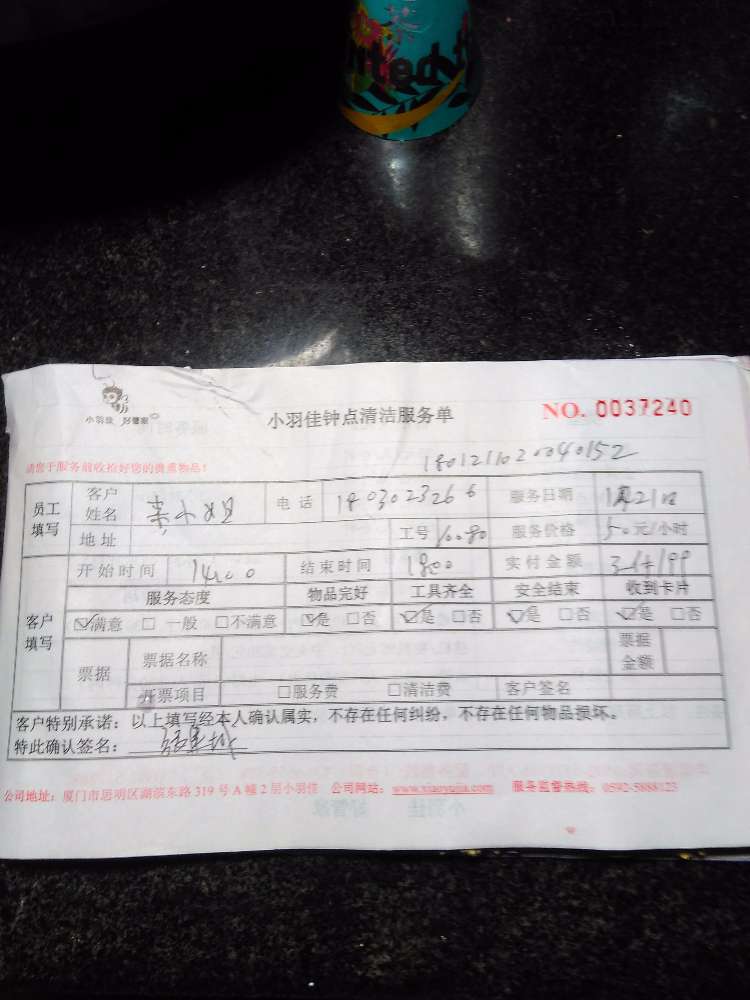 小羽佳 好管家
小羽佳钟点清洁服务单
NO. 0037240
请您于服务前收拾好您的贵重物品!
1801211020040152
员工填写 客户姓名 小姐 电话 服务日期 1月21日
地址 工号 10080 服务价格 50元/小时
客户填写 开始时间 1400 结束时间 1800 实付金额
服务态度 物品完好 工具齐全 安全结束 收到卡片
☑满意 □一般 □不满意 ☑是 □否 ☑是 □否 ☑是 □否 ☑是 □否
票据 票据名称 票据金额
开票项目 □服务费 □清洁费 客户签名
客户特别承诺:以上填写经本人确认属实,不存在任何纠纷,不存在任何物品损坏。
特此确认签名:
公司地址:厦门市思明区湖滨东路 319 号 A 幢 2 层小羽佳 公司网站:www.xiaoyujia.com 服务监督热线:0592-5888123